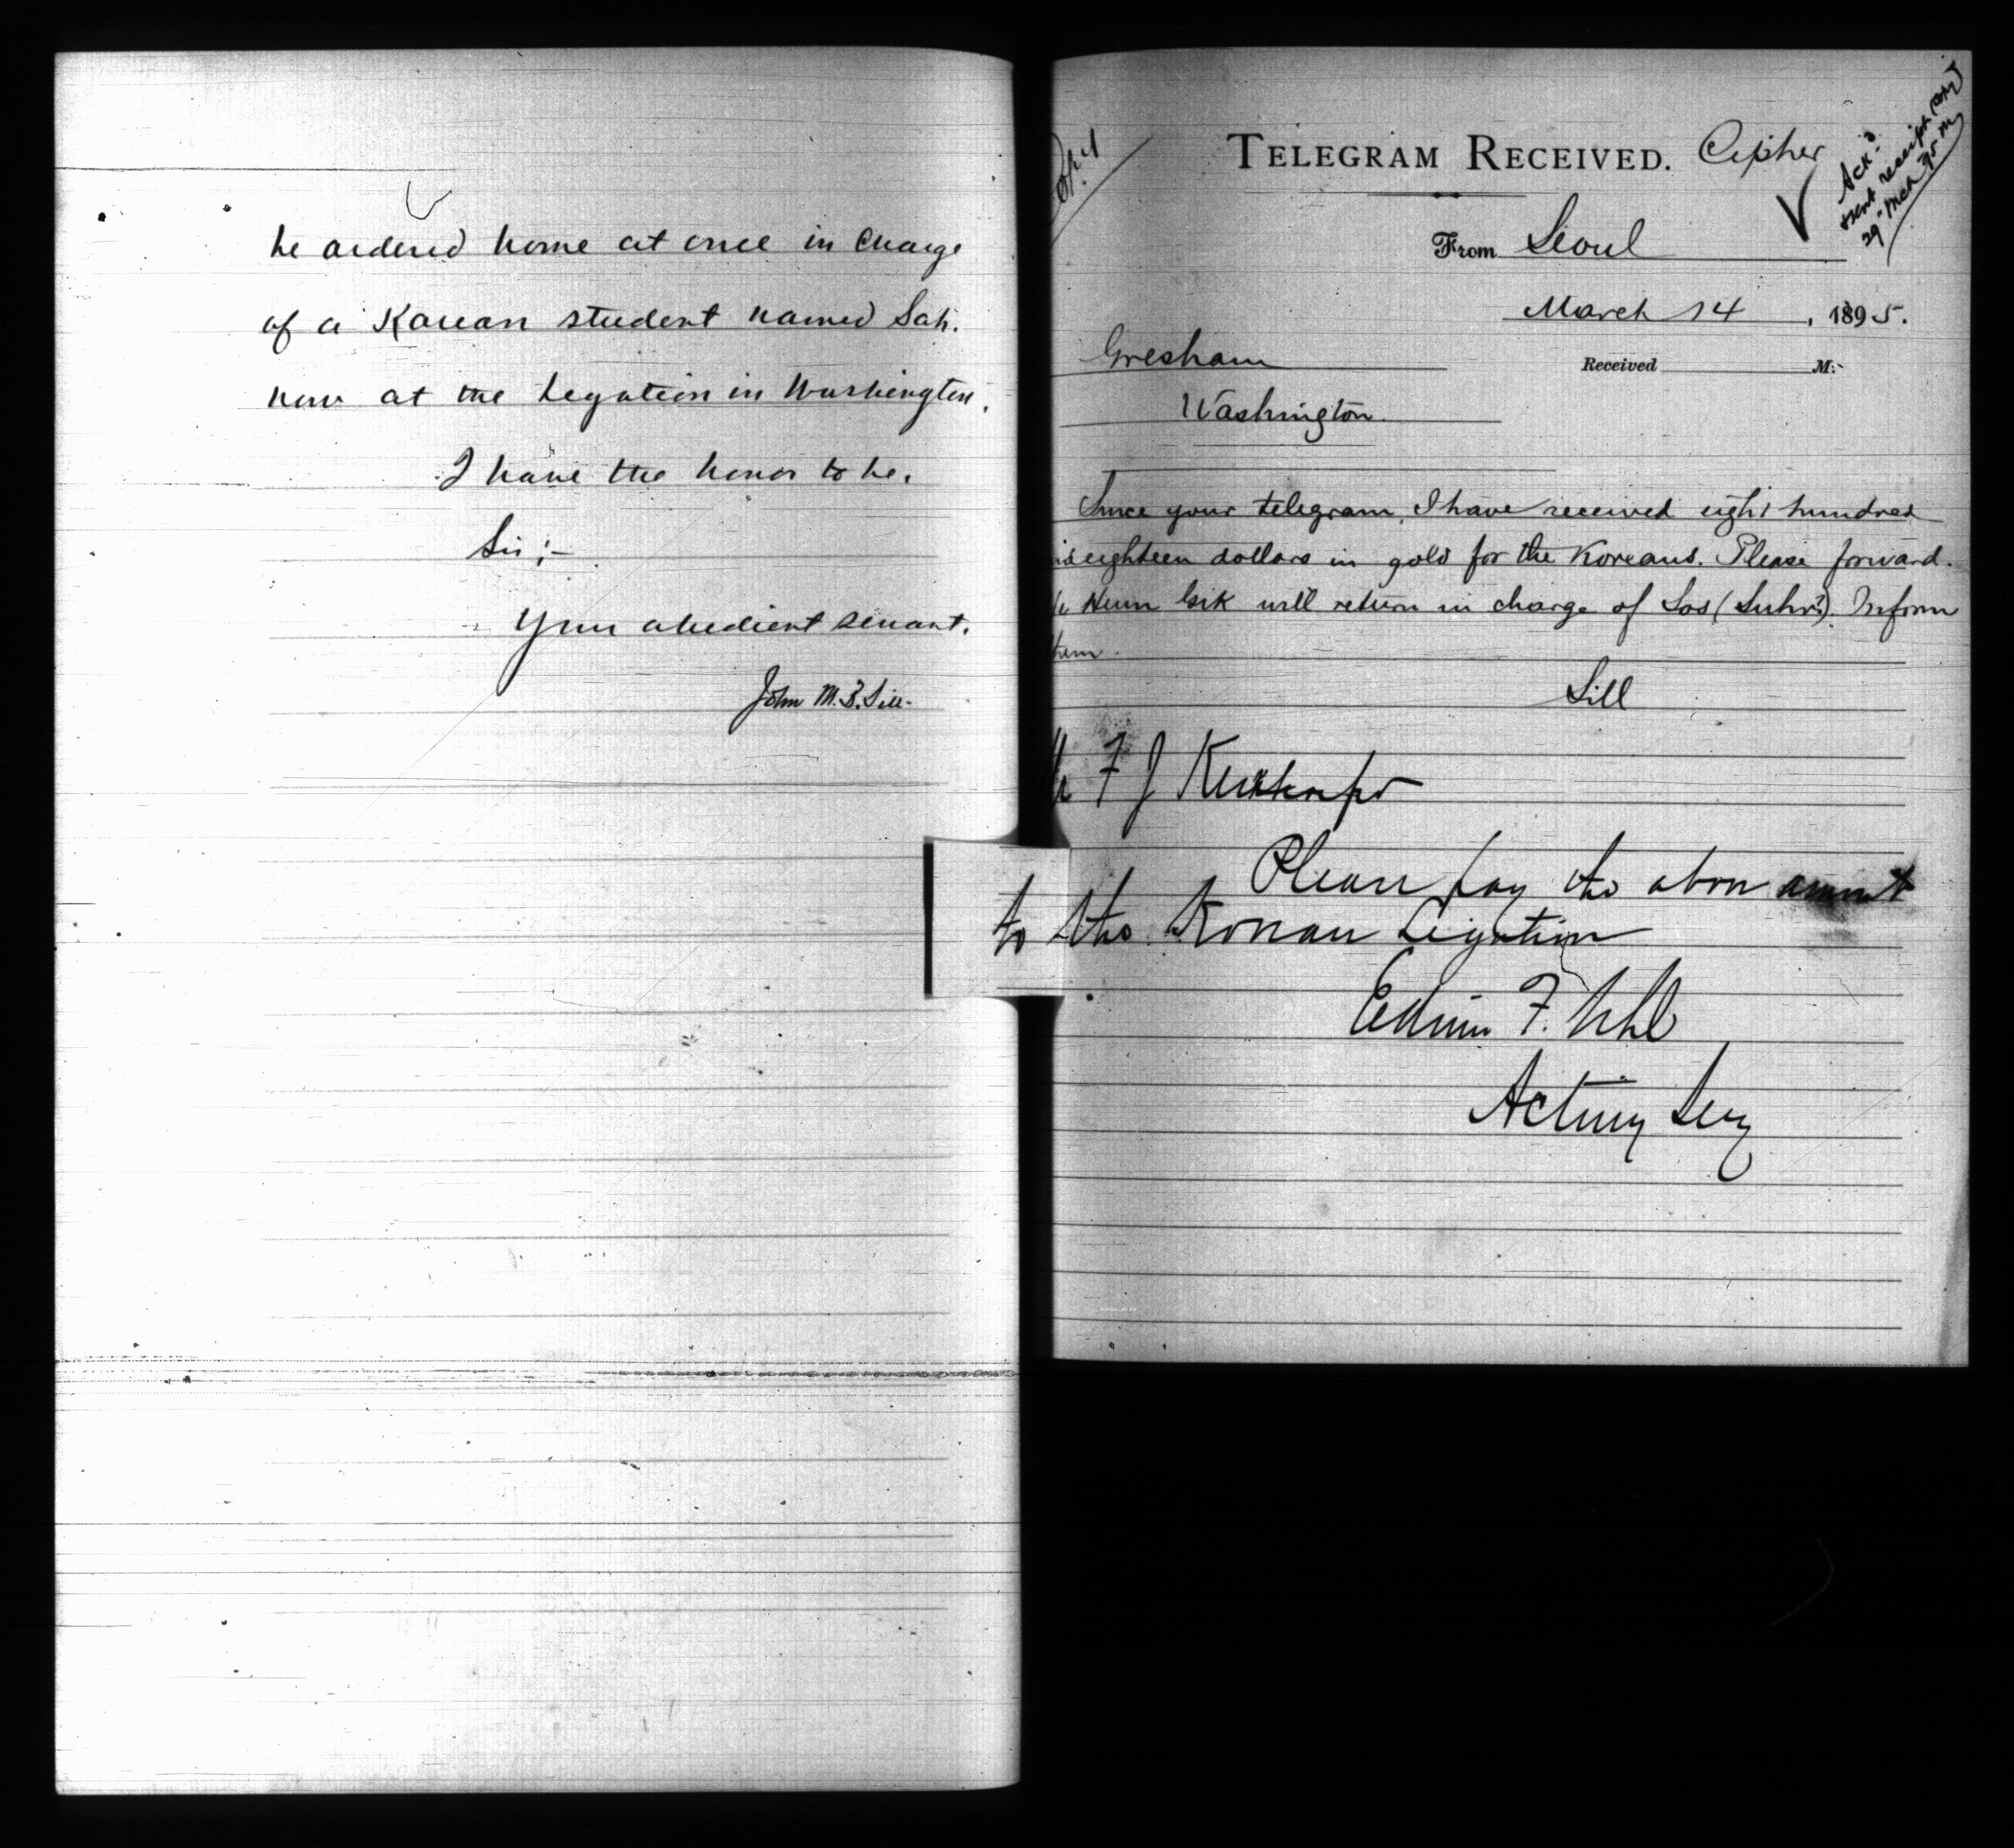 be ordered home at once in charge
of a Korean student named Sah.
now at the Legation in Washington.
I have the honor to be.
Sir ;–
Your obedient servant.
John M. B. Sill.
Copy
TELEGRAM RECEIVED. Cipher
Ack'd
sent receipt
29" Mch 95
From Seoul
March 14, 1895.
Gresham
Received M.
Washington.
Since your telegram, I have received eight hundred
eighteen dollars in gold for the Koreans. Please forward.
Heun will return in charge of Sos (Suhr?). Inform
them.
Sill
F J
Please pay the above amount
to the Korean Legation
Edwin F. Uhl
Acting Secy